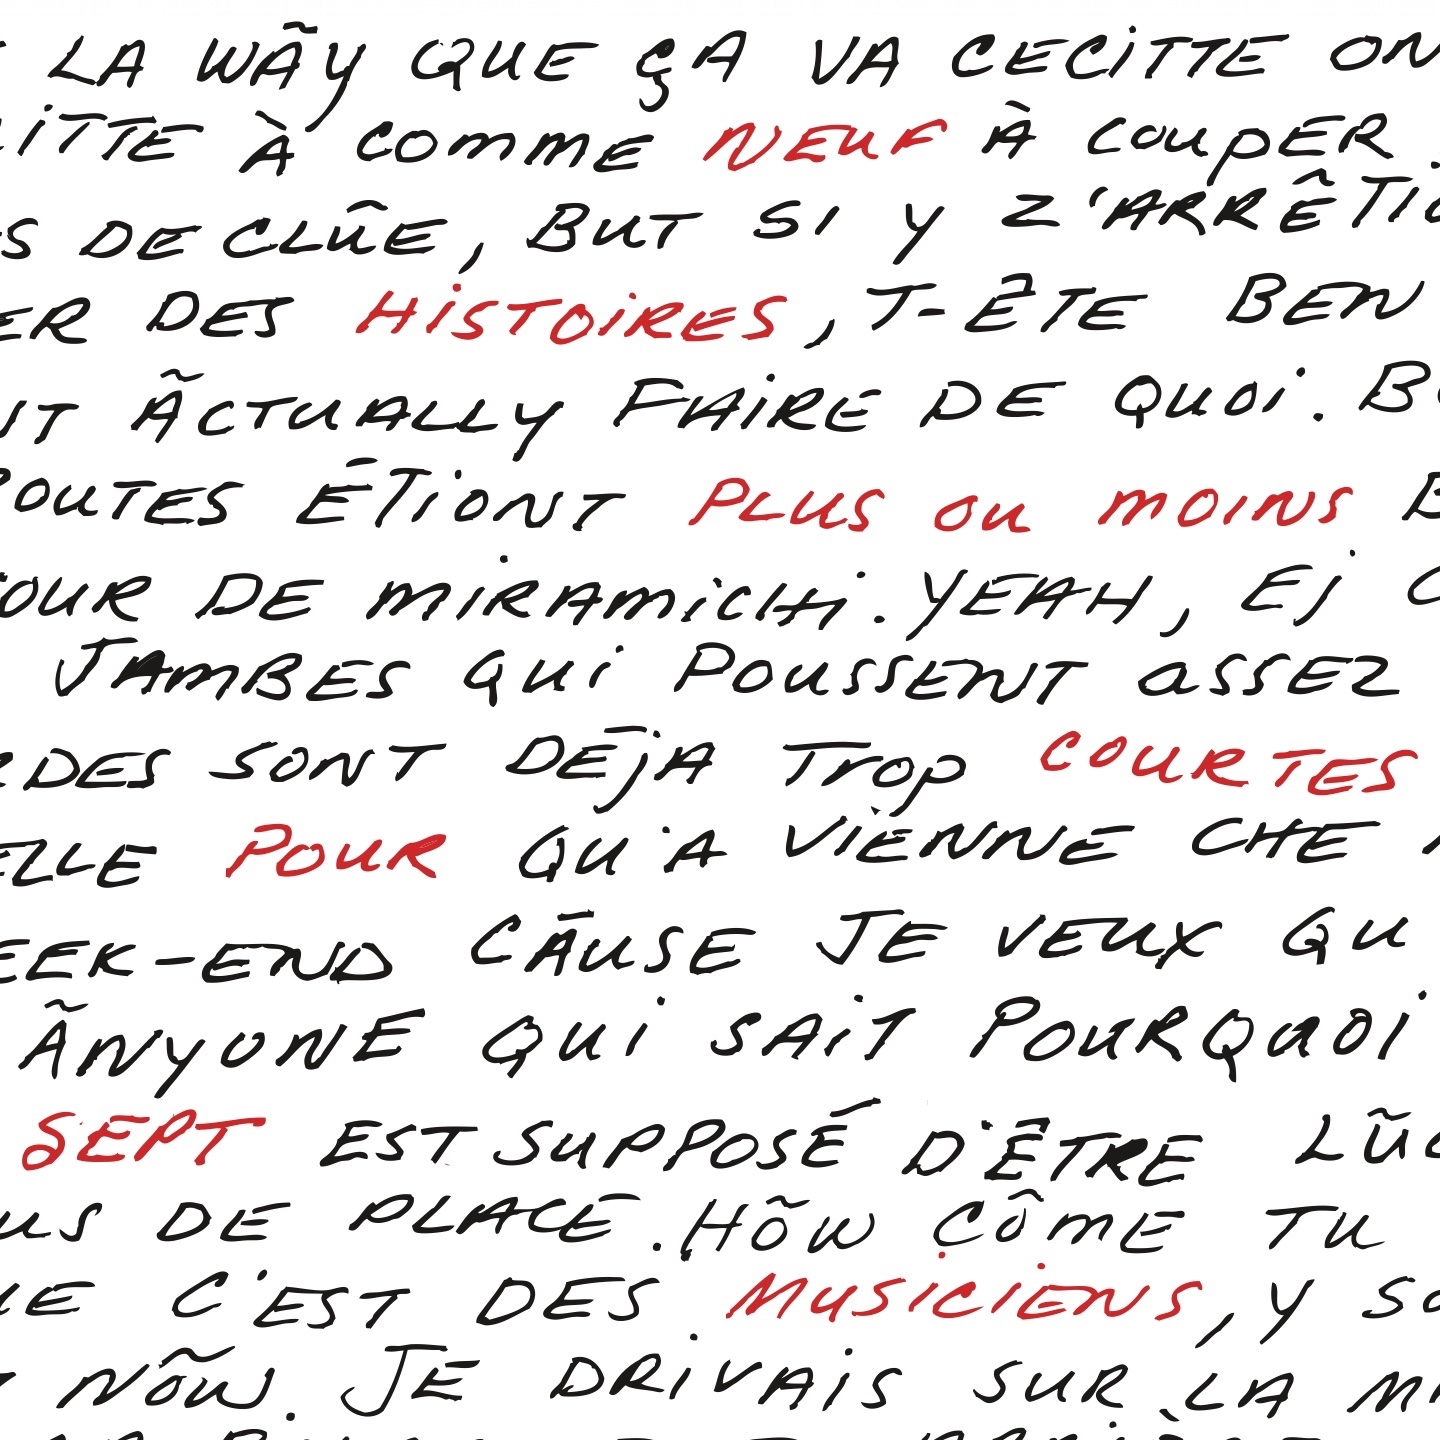 LA WÃY QUE ÇA VA CECITTE ON
ITTE À COMME NEUF À COUPER
S DECLÛE, BUT SI Y Z'ARRÊTIO
ER DES HISTOIRES, T-ÊTE BEN
NT ÃCTUALLY FAIRE DE QUOI. B
ROUTES ÉTIONT PLUS OU MOINS B
OUR DE MIRAMICHI. YEAH, EJ
JAMBES QUI POUSSENT ASSEZ
RDES SONT DÉJÀ TROP COURTES
ELLE POUR QU'A VIENNE CHE
EEK-END CÃUSE JE VEUX QU
ÃNYONE QUI SAIT POURQUOI
SEPT EST SUPPOSÉ D'ÊTRE LÛ
US DE PLACE. HÕW CÔME TU
UE C'EST DES MUSICIENS, Y SO
NÕW. JE DRIVAIS SUR LA M